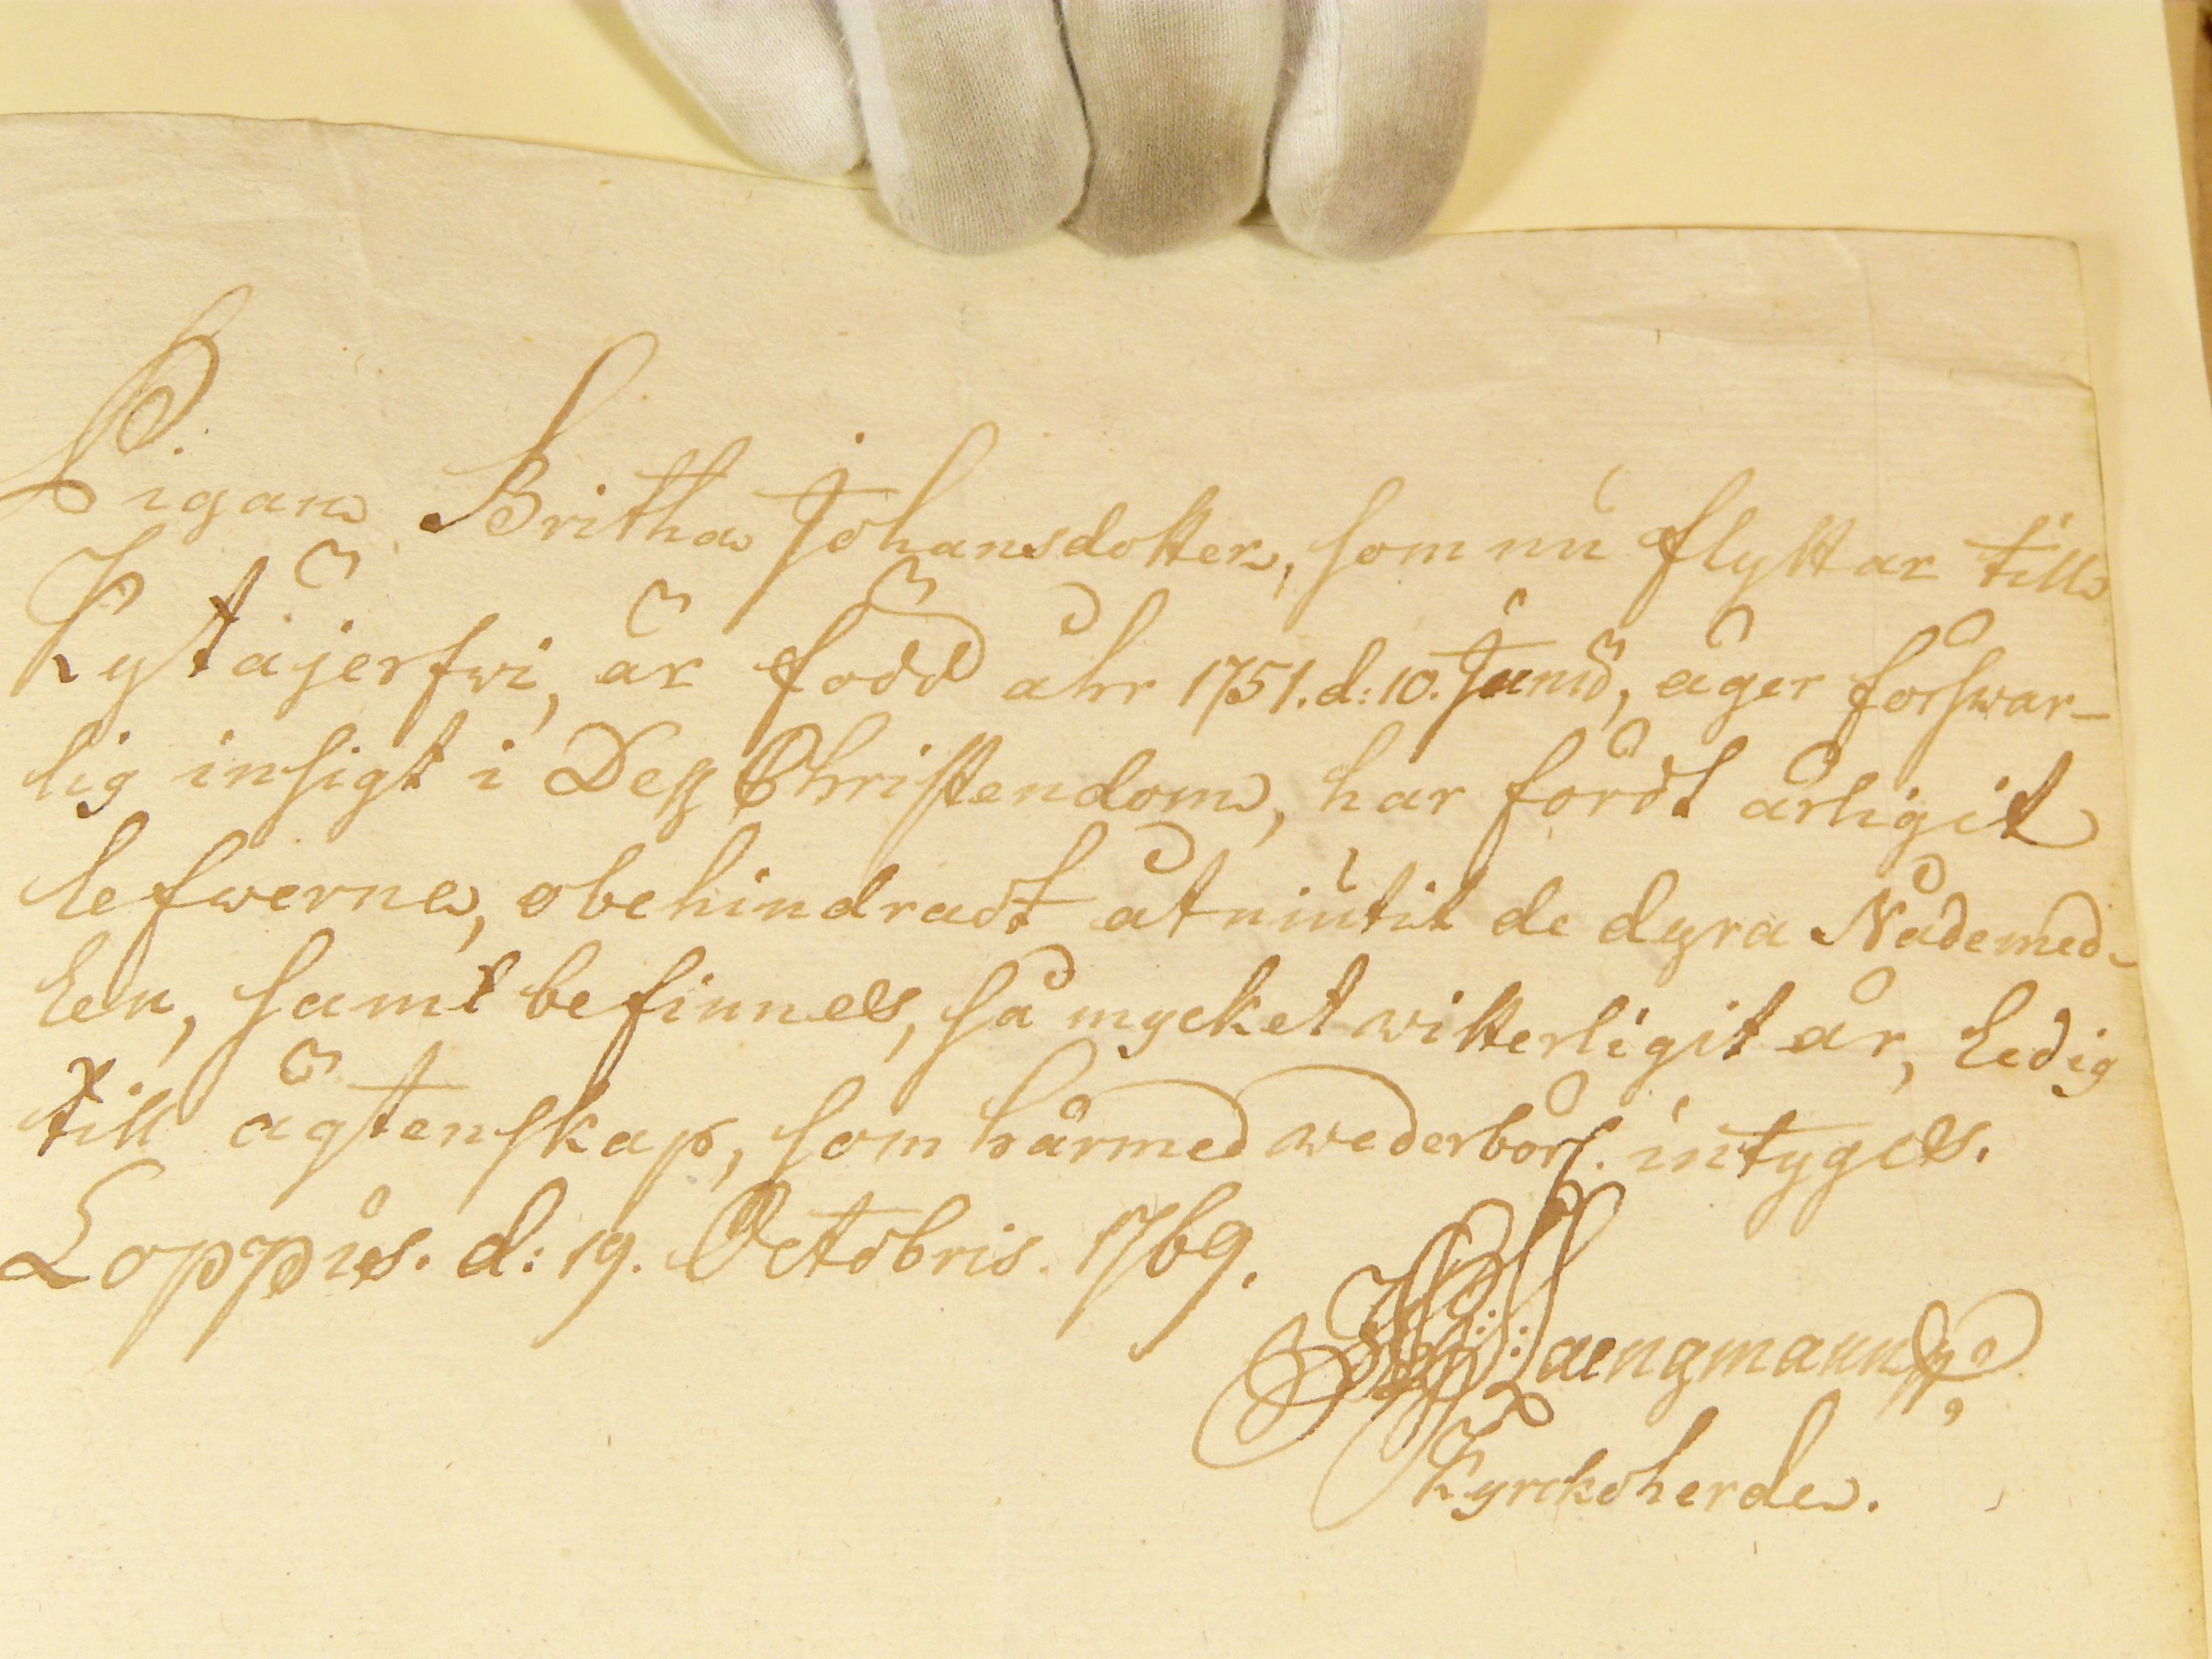 Pigan Britha Johansdotter, som nu flyttar till
Kytäjerfwi, är född åhr 1751. d: 10. Junii, äger förswar-
lig insigt i Dess Christendom, har fördt ärligit
lefwerne, obehindradt åtniutit de dyra Nådemed-
len, samt befinnes, så mycket witterligit är, ledig
till ägtenskap, som härmed wederbörl. intyges.
Loppis. d: 19. Octobris. 1769.
Laengmann
Kyrckoherde.